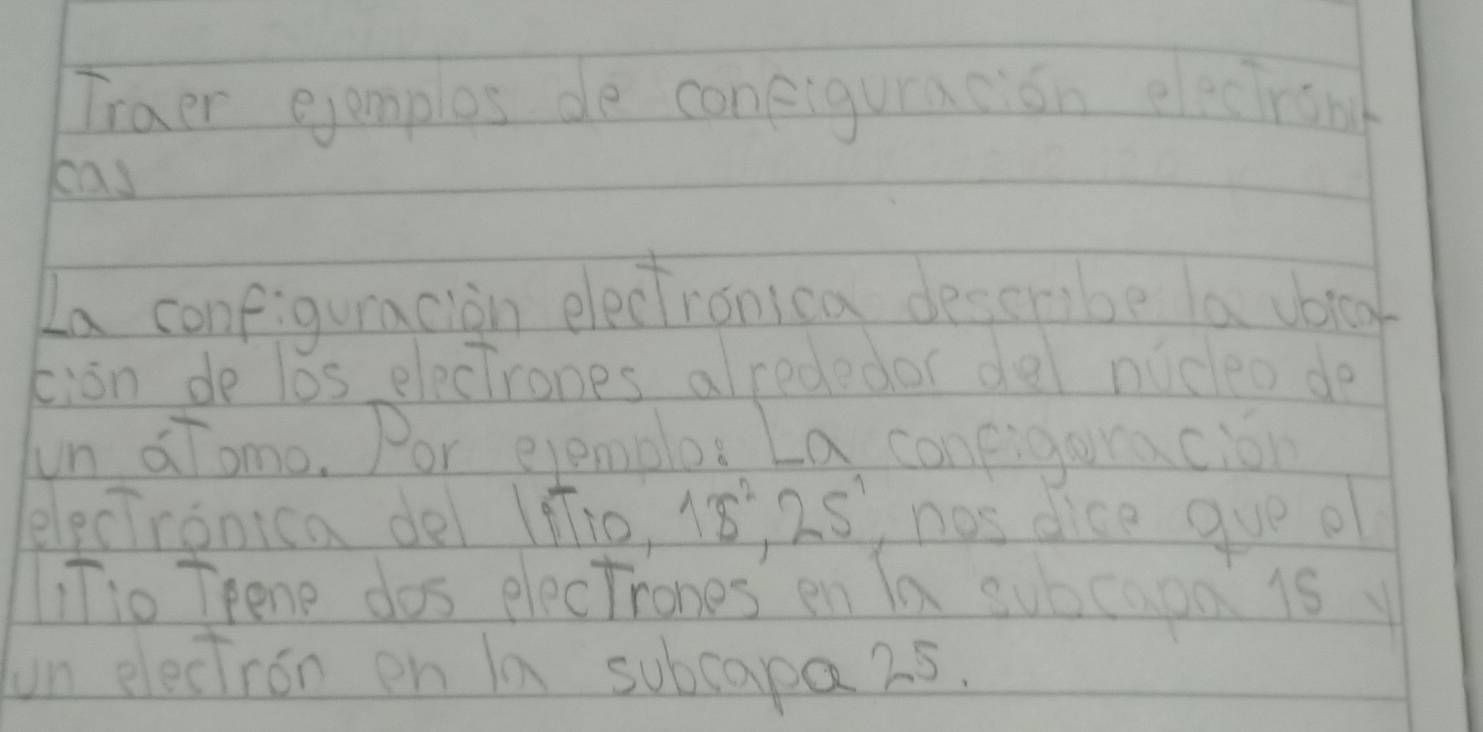 Traer ejemplos de configuración electróni
cas
La configuración electrónica describe la ubica
ción de los electrones alrededor del núcleo de
un átomo. Por ejemplo: La configuración
electrónica del litio, 1s², 2s¹, nos dice que el
litio Teene dos electrones en la subcapa 1s y
un electrón en la subcapa 2s.